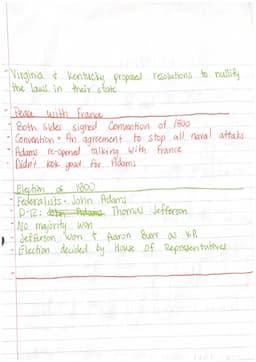 Virginia & Kentucky proposed resolutions to nullify
the laws in their state
- Peace with France
- Both sides signed Convention of 1800
- Convention = An agreement to stop all naval attaks
- Adams re-opened talking with France
- Didn't look good for Adams
Election of 1800
- Federalists - John Adams
- D-R: John Adams Thomas Jefferson
- No majority won
- Jefferson won & Aaron Burr as V.P.
- Election decided by House of Representatives